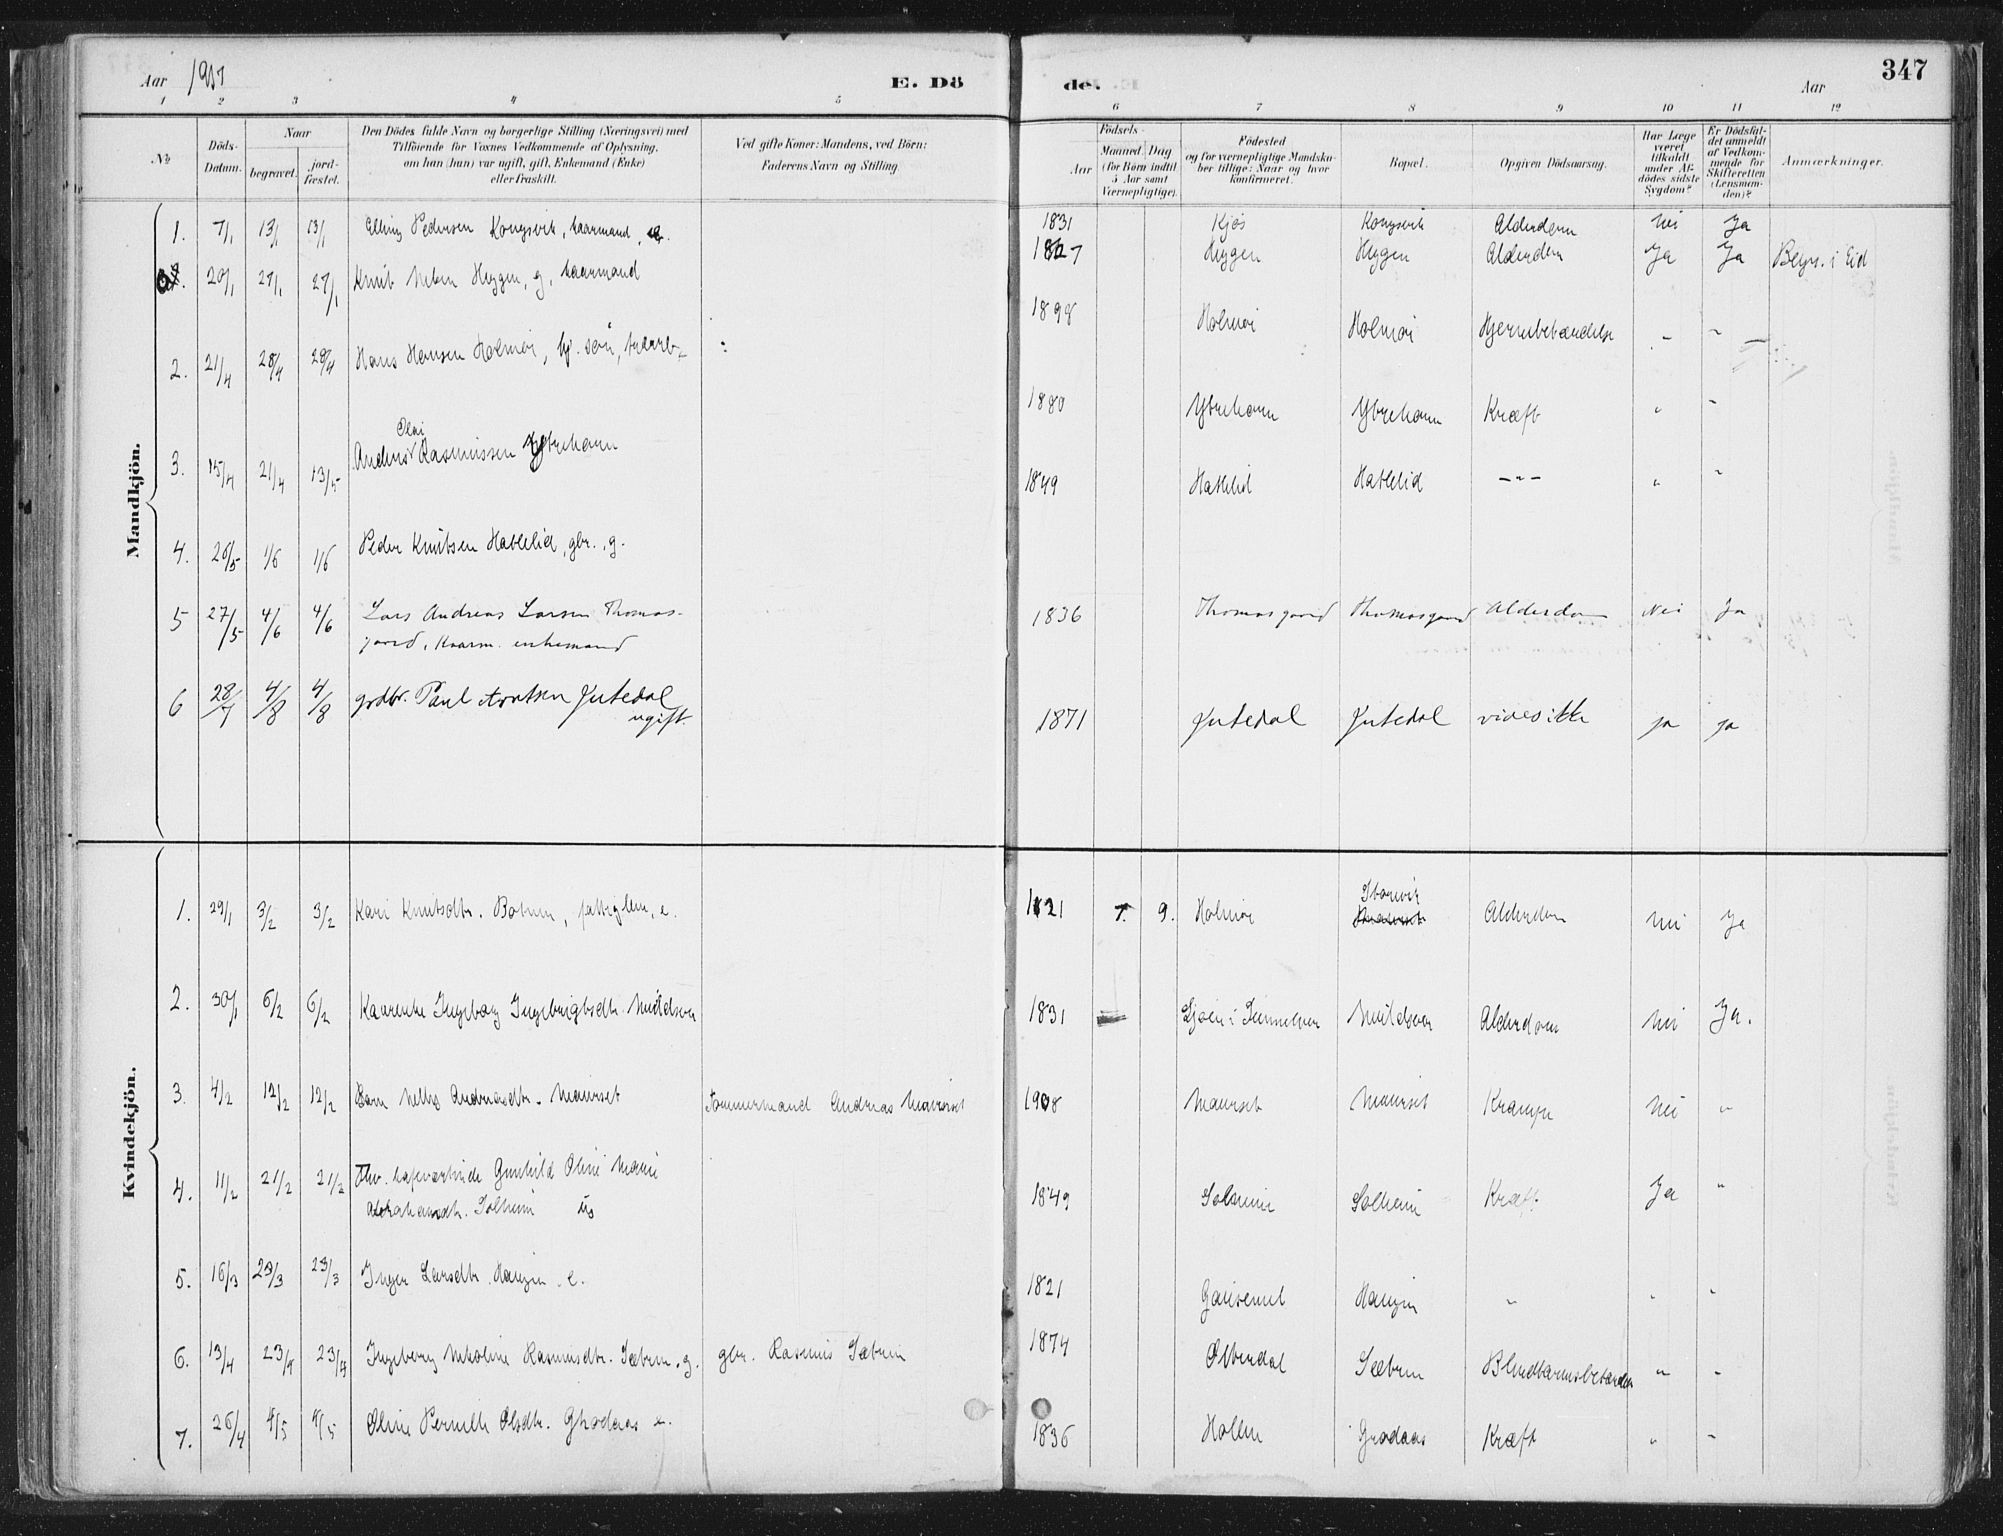 Aar 1917
E. Dö
de.
Aar
347
1 2 3 4 5 6 7 8 9 10 11 12
№
Döds-Datum.
Naar
begravet.
jord-fæstet.
Den Dödes fulde Navn og borgerlige Stilling (Næringsvei) med
Tilföiende for Voxnes Vedkommende af Oplysning,
om han (hun) var ugift, gift, Enkemand (Enke)
eller fraskilt.
Ved gifte Koner: Mandens, ved Börn:
Faderens Navn og Stilling.
Födsels-
Aar
Maaned. Dag
(for Börn indtil
5 Aar samt
Værnepligtige).
Födested
og for værnepligtige Mandska-
ber tillige: Naar og hvor
konfirmeret.
Bopæl.
Opgiven Dödsaarsag.
Har Læge
været
tilkaldt
under Af-
dödes sidste
Sygdom?
Er Dödsfal-
det anmeldt
af Vedkom-
mende for
Skifteretten
(Lensman-
den)?
Anmærkninger.
Mandkjön.
1. 7/1 13/1 13/1 Elling Pedersen Kongsvik, kaarmand, e. 1831 Kjøs Kongsvik Alderdom Nei Ja
20/1 27/1 27/1 Knut Nelsen Heggen, g, kaarmand 1827 Heggen Heggen Alderdom Ja Ja Begr. i Eid
2. 21/4 28/4 29/4 Hans Hansen Holmøi, hj. søn, 1898 Holmøi Holmøi Hjernebetændelse - "
3. 15/4 21/4 13/5 Anders Olai Rasmussen Ytrehavn 1880 Ytrehavn Ytrehavn Kræft " "
4. 26/5 1/6 1/6 Peder Knutsen Hatlelid, gbr., g. 1849 Hatlelid Hatlelid -"- " "
5 27/5 4/6 4/6 Lars Andreas Larsen Thomas-
gaard, kaarm. enkemand 1836 Thomasgaard Thomasgaard Alderdom Nei Ja
6 28/7 4/8 4/8 grdbr. Paul Arntsen Jutedal
ugift. 1871 Jutedal Jutedal vides ikke ja ja
Kvindekjön.
1. 29/1 3/2 3/2 Kari Knutsdtr. Botnen, fattiglem, e. 1821 7. 9. Holmøi Alderdom Nei Ja
2. 30/1 6/2 6/2 Ingeborg Ingebrigtsdtr. 1831 Alderdom Nei Ja.
3. 4/2 12/2 12/2 Barn Nelly Andreasdtr. Maurset Tømmermand Andreas Maurset 1908 Maurset Maurset Krampe Nei "
4. 11/2 21/2 21/2 Gunhild Oline Marie
Abrahamsdtr. Solheim 1849 Solheim Solheim Kræft Ja "
5. 16/3 23/3 23/3 Inger Larsdtr. Haugen e. 1821 Gausemel Haugen " " "
6. 13/4 23/4 23/4 Ingeborg Nikoline Rasmusdtr. Sæbren. g. gbr. Rasmus Sæbren 1874 Otterdal Sæbren Blindtarmsbetændelse " "
7. 26/4 4/5 4/5 Oline Pernille Olsdtr. Grodaas e. 1836 Hollen Grodaas Kræft " "